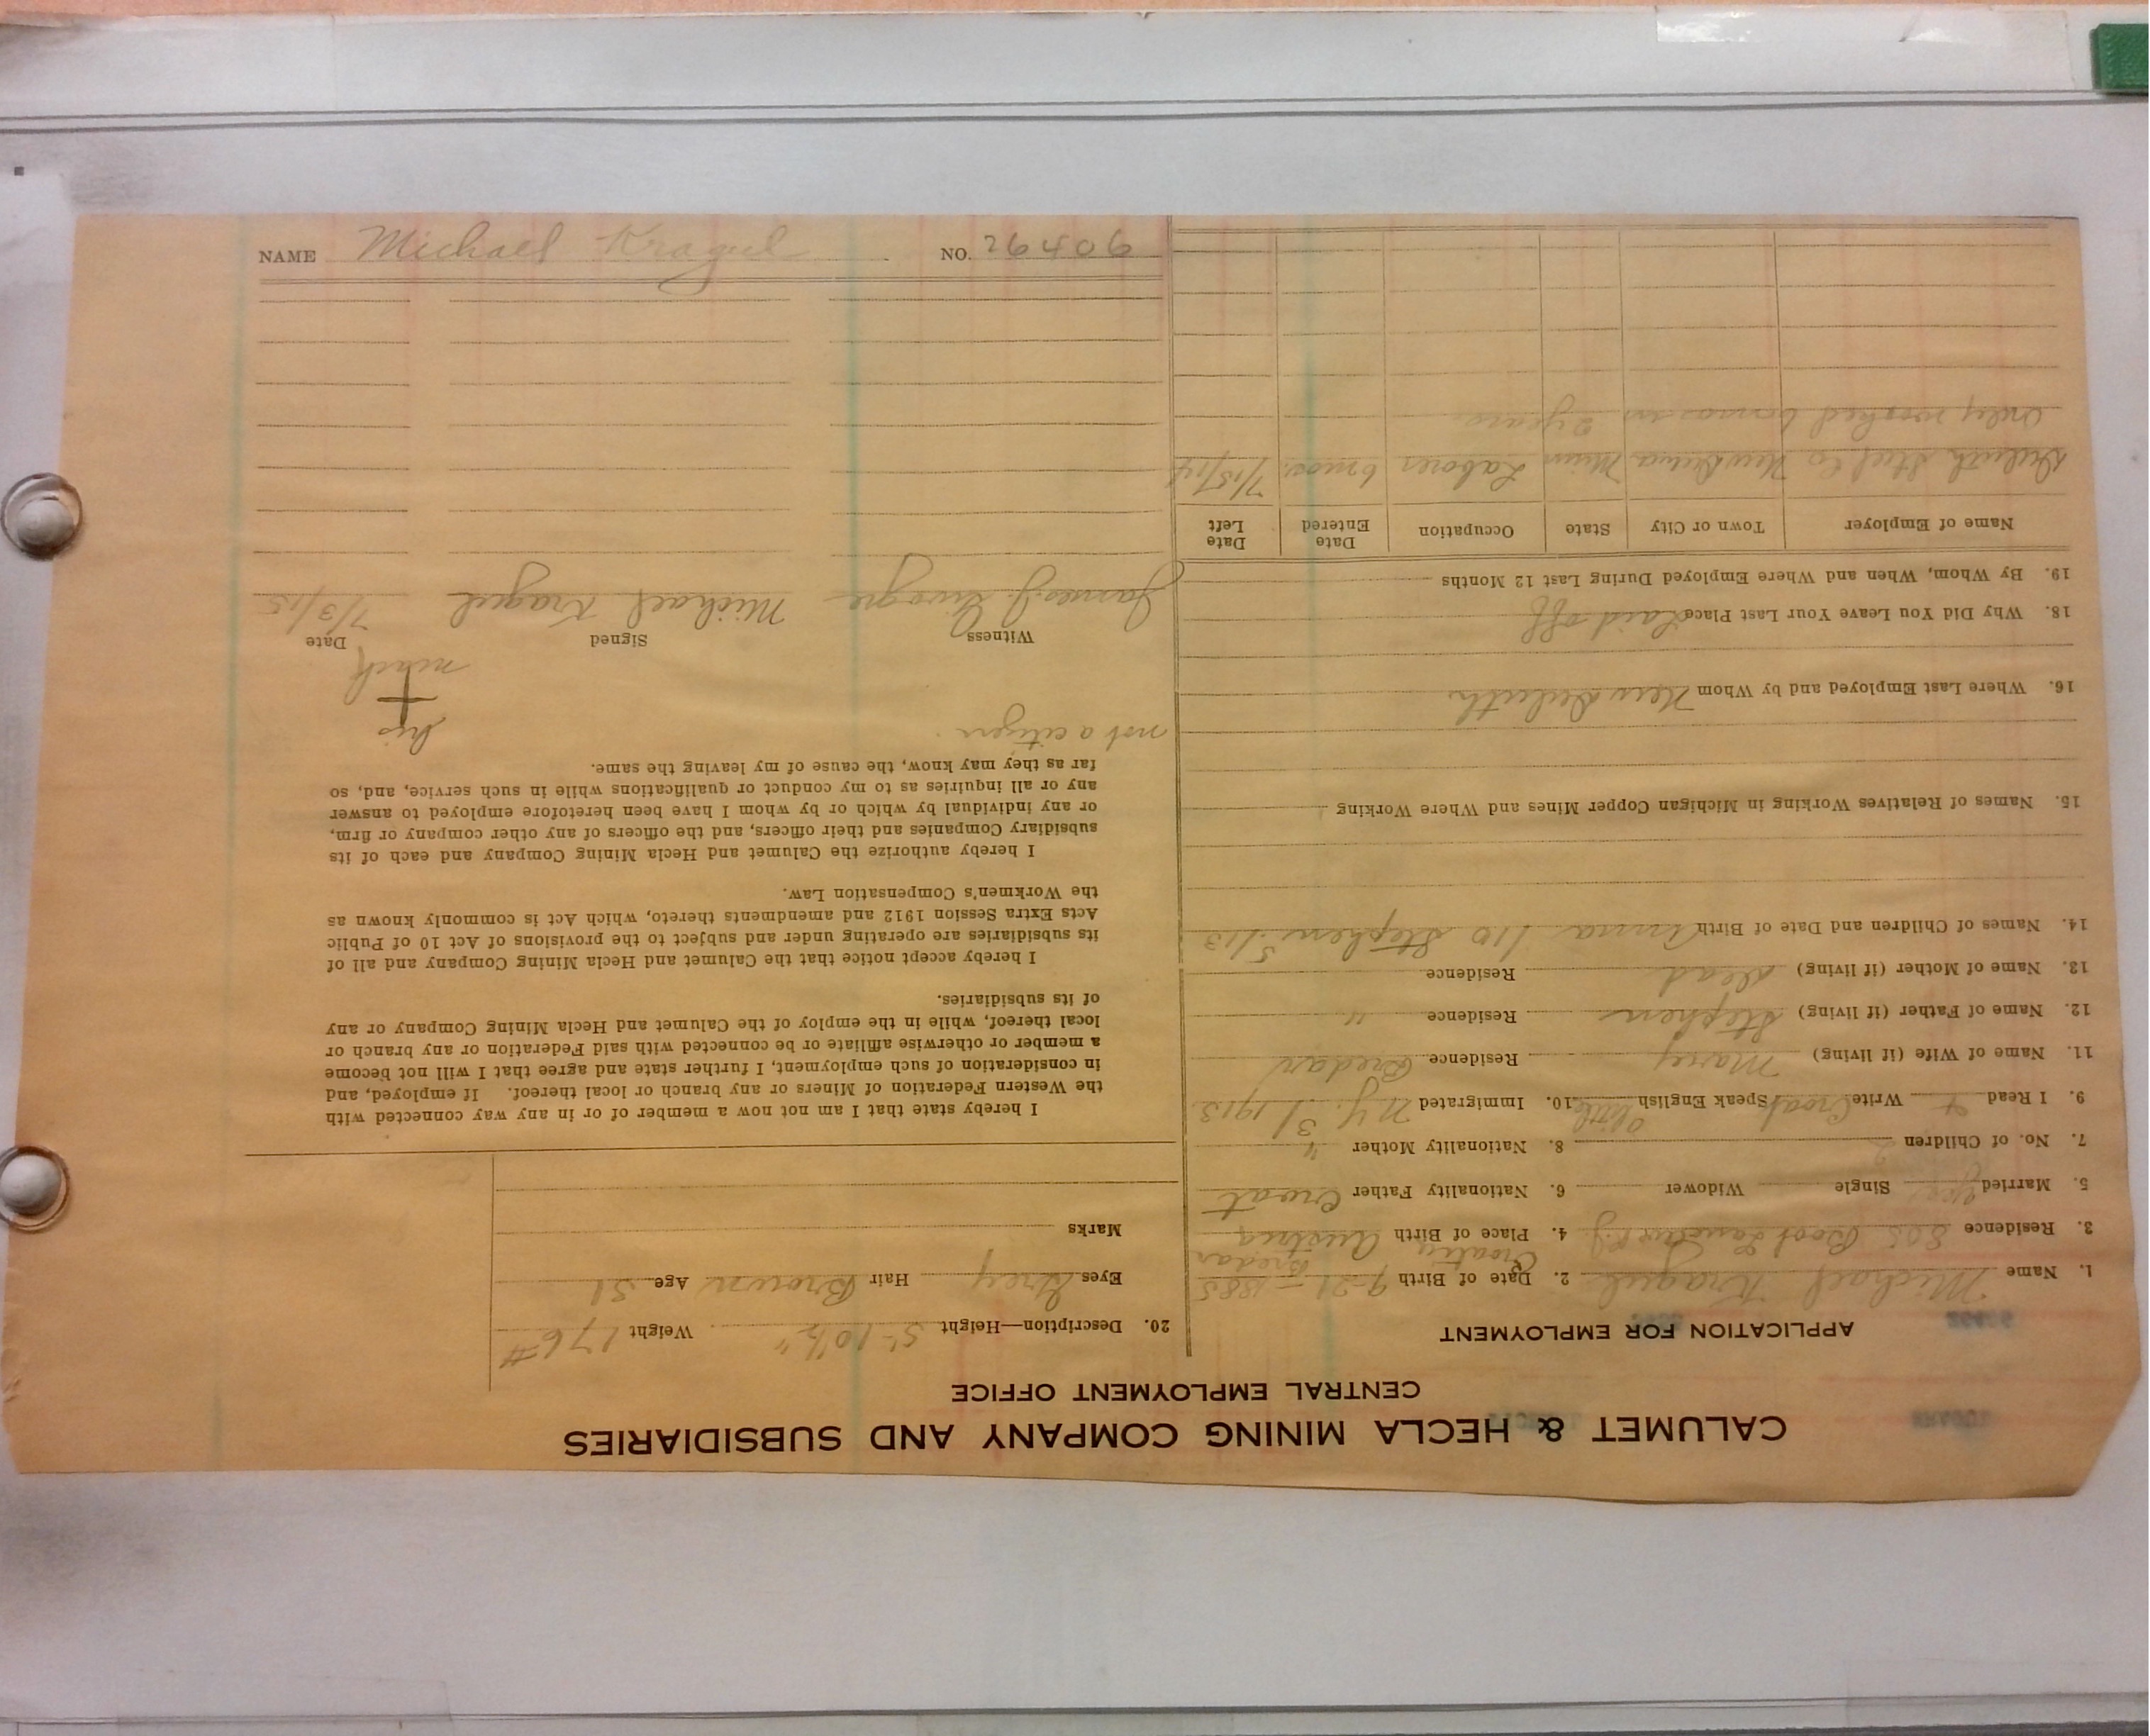 CALUMET & HECLA MINING COMPANY AND SUBSIDIARIES
CENTRAL EMPLOYMENT OFFICE
APPLICATION FOR EMPLOYMENT
1. Name Michael Kragul 2. Date of Birth 9-21-1885
Croatia Bredar
3. Residence 805 Boot Jack 4. Place of Birth Austria
5. Married yes Single Widower 6. Nationality Father Croat
7. No. of Children 2 8. Nationality Mother "
9. I Read + Write Croat Speak English little 10. Immigrated N.Y. 3/1913
11. Name of Wife (if living) Mary Residence Bredar
12. Name of Father (if living) Stephen Residence "
13. Name of Mother (if living) dead Residence
14. Names of Children and Date of Birth Anna 1/10 Stephen 5/13
15. Names of Relatives Working in Michigan Copper Mines and Where Working
16. Where Last Employed and by Whom New Duluth
18. Why Did You Leave Your Last Place Laid off
19. By Whom, When and Where Employed During Last 12 Months
Name of Employer Town or City State Occupation Date Entered Date Left
Duluth Steel Co New Duluth Minn Laborer 6 mos. 7/15/14
Only worked 6 mos in 2 years
20. Description—Height 5'-10½" Weight 176#
Eyes Grey Hair Brown Age 31
Marks
I hereby state that I am not now a member of or in any way connected with
the Western Federation of Miners or any branch or local thereof. If employed, and
in consideration of such employment, I further state and agree that I will not become
a member or otherwise affiliate or be connected with said Federation or any branch or
local thereof, while in the employ of the Calumet and Hecla Mining Company or any
of its subsidiaries.
I hereby accept notice that the Calumet and Hecla Mining Company and all of
its subsidiaries are operating under and subject to the provisions of Act 10 of Public
Acts Extra Session 1912 and amendments thereto, which Act is commonly known as
the Workmen's Compensation Law.
I hereby authorize the Calumet and Hecla Mining Company and each of its
subsidiary Companies and their officers, and the officers of any other company or firm,
or any individual by which or by whom I have been heretofore employed to answer
any or all inquiries as to my conduct or qualifications while in such service, and, so
far as they may know, the cause of my leaving the same.
not a citizen.
his
+
mark
Witness Signed Date
James J. Michael Kragul 7/3/15
NAME Michael Kragul NO. 26406